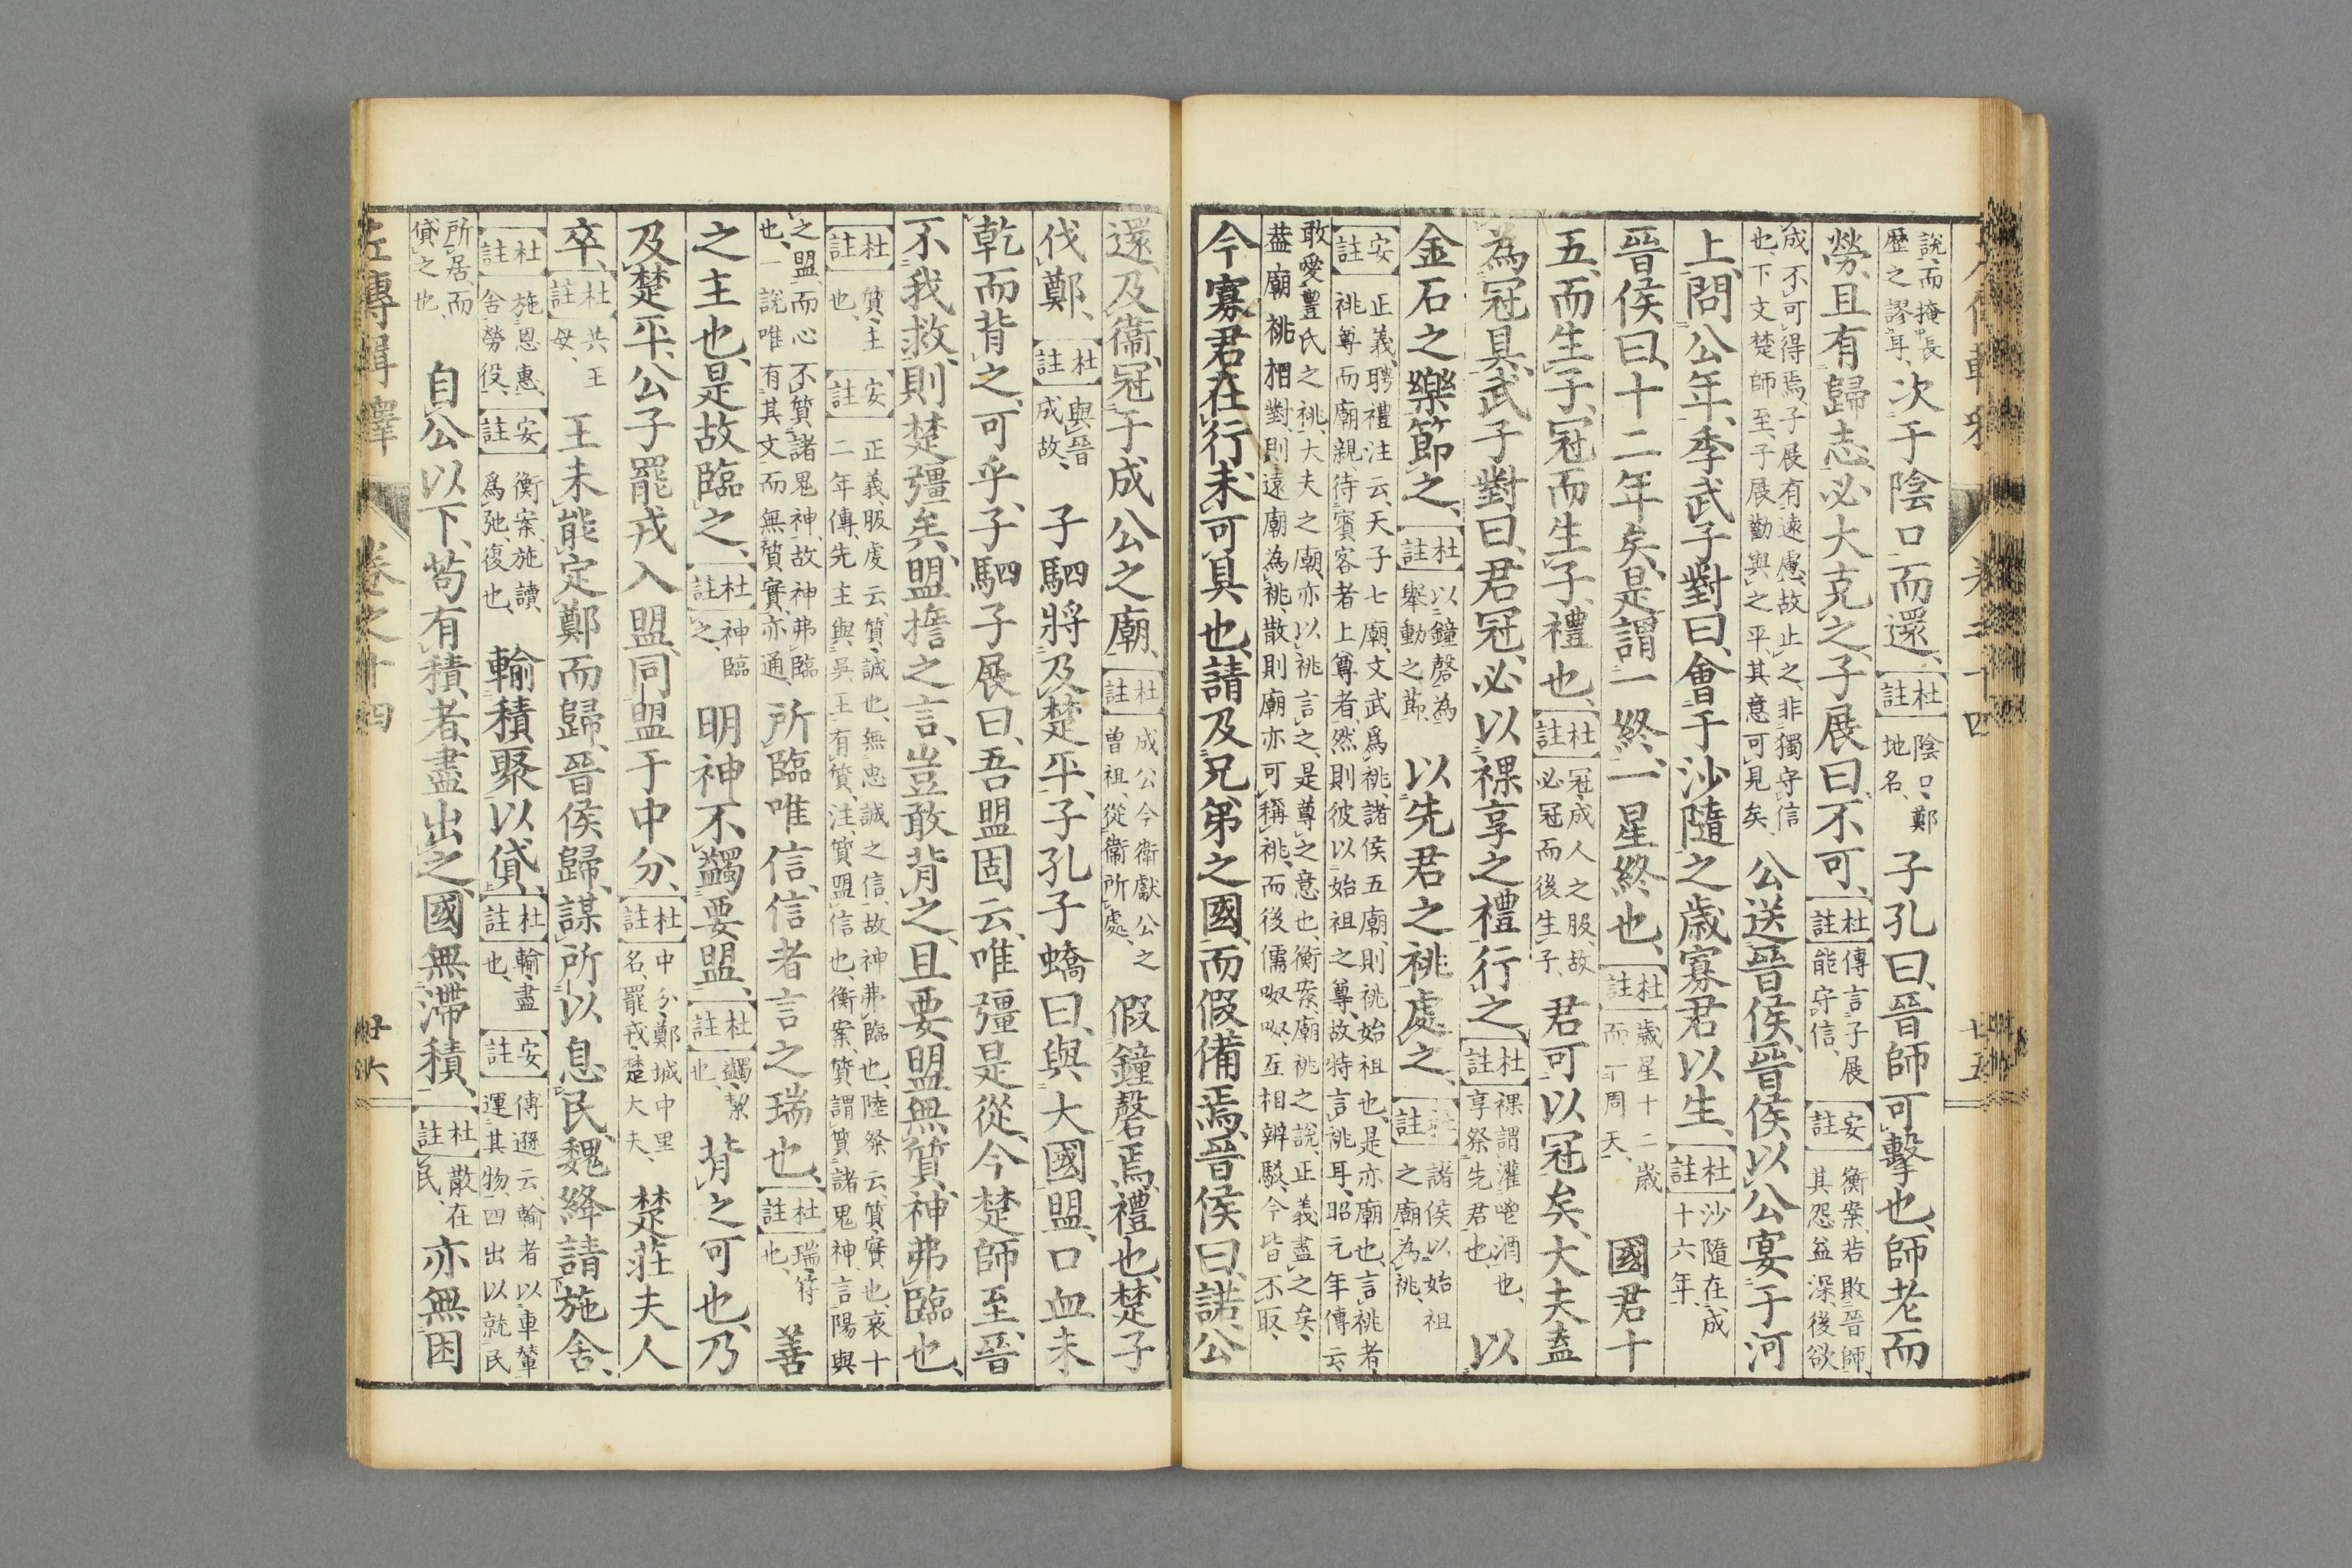 說、而掩長
歷之謬耳、次于陰口而還、【杜註】陰口、鄭地名、子孔曰、晉師可擊也、師老而
勞、且有歸志、必大克之、子展曰、不可、【杜註】傳言子展能守信、【安註】衡案、若敗晉師、其怨益深、後欲
成不可得焉、子展有遠慮、故止之、非獨守信
也、下文楚師至、子展勸與之平、其意可見矣、公送晉侯、晉侯以公宴于河
上、問公年、季武子對曰、會于沙隨之歲、寡君以生、【杜註】沙隨在成十六年、
晉侯曰、十二年矣、是謂一終、一星終也、【杜註】歲星十二歲而一周天、國君十
五而生子、冠而生子、禮也、【杜註】冠、成人之服、故必冠而後生子、君可以冠矣、大夫盍
為冠具、武子對曰、君冠、必以祼享之禮行之、【杜註】祼謂灌鬯酒也、享祭先君也、以
金石之樂節之、【杜註】以鐘磬為舉動之節、以先君之祧處之、【杜註】諸侯以始祖之廟為祧、
【安註】正義、聘禮注云、天子七廟、文武爲祧、諸侯五廟、則祧始祖也、是亦廟也、言祧者、
祧尊而廟親、待賓客者上尊者、然則彼以始祖之尊、故特言祧耳、昭元年傳云、
敢愛豐氏之祧、大夫之廟、亦以祧言之、是尊之意也、衡案、廟祧之說、正義盡之矣、
葢廟祧相對、則遠廟為祧、散則廟亦可稱祧、而後儒呶呶、互相辨駁、今皆不取、
今寡君在行、未可具也、請及兄弟之國、而假備焉、晉侯曰、諾、公
還、及衞、冠于成公之廟、【杜註】成公今衛獻公之曾祖、從衞所處、假鐘磬焉、禮也、楚子
伐鄭、【杜註】與晉成故、子駟將及楚平、子孔子蟜曰、與大國盟、口血未
乾而背之、可乎、子駟子展曰、吾盟固云、唯彊是從、今楚師至、晉
不我救、則楚彊矣、盟誓之言、豈敢背之、且要盟無質、神弗臨也、
【杜註】質、主也、【安註】正義服虔云、質、誠也、無忠誠之信、故神弗臨也、陸粲云、質實也、哀十
二年傳、先主與吳王有質、注、質盟信也、衡案、質謂質諸鬼神、言陽與
之盟、而心不質諸鬼神、故神弗臨
也、一說唯有其文而無質實、亦通、所臨唯信、信者言之瑞也、【杜註】瑞、符也、善
之主也、是故臨之、【杜註】神臨之、明神不蠲要盟、【杜註】蠲、絜也、背之可也、乃
及楚平、公子罷戎入盟、同盟于中分、【杜註】中分、鄭城中里名、罷戎、楚大夫、楚莊夫人
卒、【杜註】共王母、王未能定鄭而歸、晉侯歸、謀所以息民、魏絳請施舍、
【杜註】施恩惠、舍勞役、【安註】衡案、施讀爲弛、復也、輸積聚以貸、【杜註】輸、盡也、【安註】傅遜云、輸者以車輦運其物、四出以就民
所居、而
貸之也、自公以下、苟有積者、盡出之、國無滯積、【杜註】散在民、亦無困
左傳輯釋　卷之十四　廿六